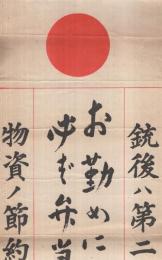 銃後ハ第二
お勤めに
必ず弁当
物資ノ節約